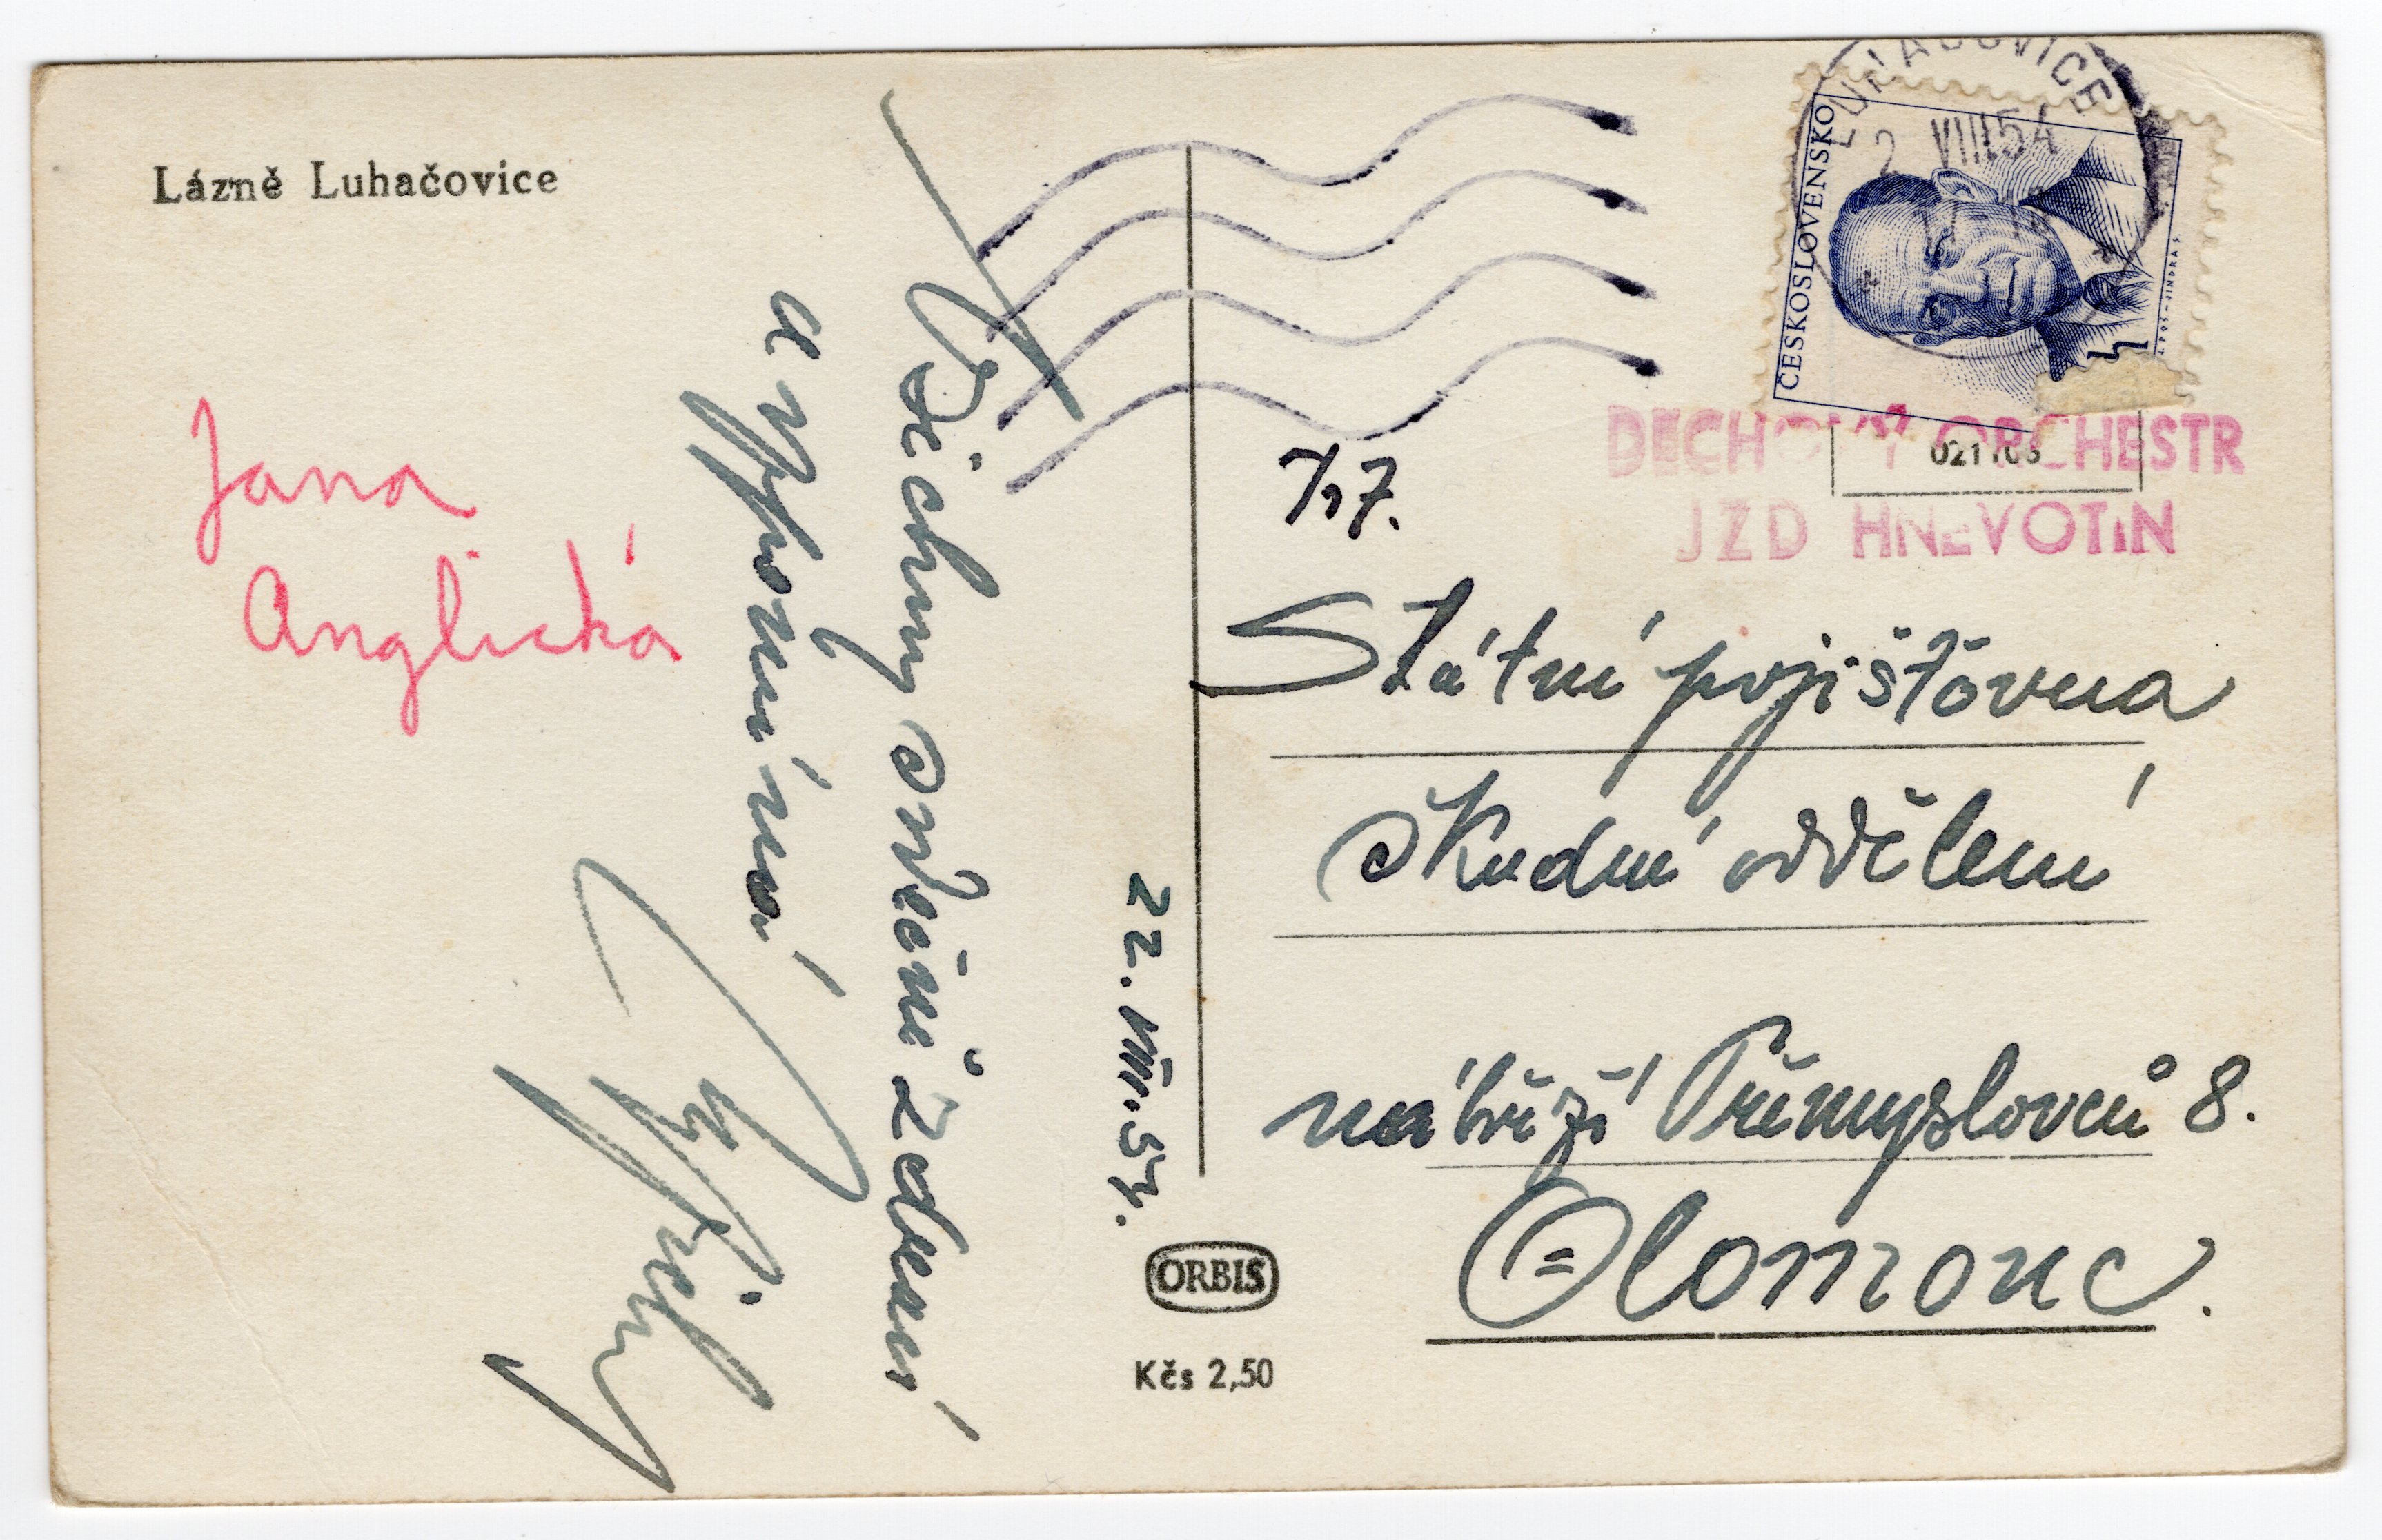 Lázně Luhačovice
Jana
Anglická
Všichny srdečně zdraví
a vzpomíná
22.VIII.54.
ORBIS
Kčs 2,50
LUHAČOVICE
2 VIII 54
ČESKOSLOVENSKO
DECHOVÝ ORCHESTR
JZD HNĚVOTÍN
Státní pojišťovna
škodní oddělení
nábřeží Přemyslovců 8.
Olomouc.